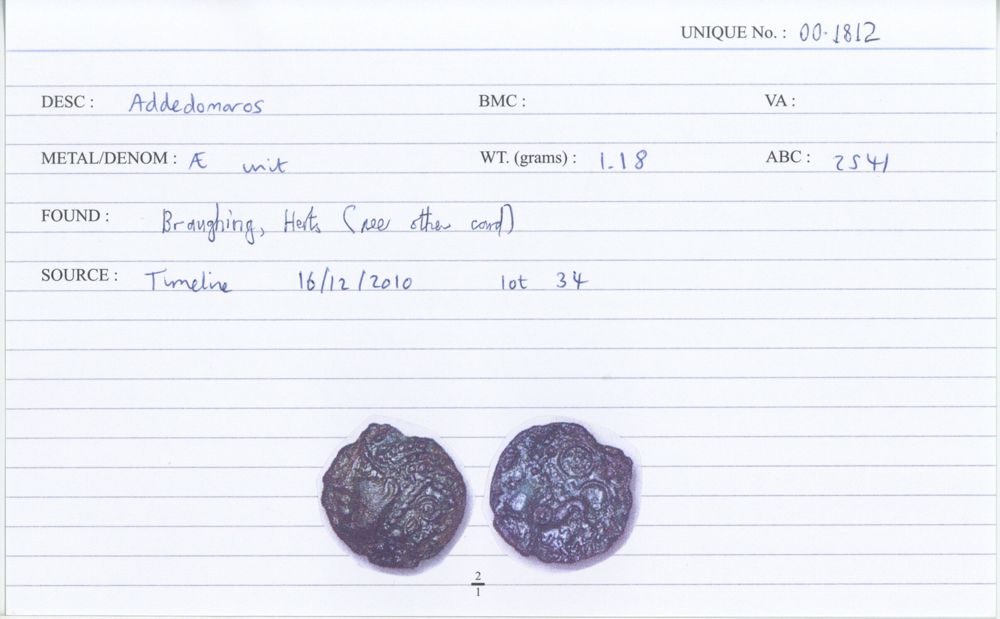 UNIQUE No. : 00.1812
DESC : Addedomaros BMC : VA :
METAL/DENOM : Æ unit WT. (grams) : 1.18 ABC : 2541
FOUND : Braughing, Herts (see other card)
SOURCE : Timeline 16/12/2010 lot 34
2
1